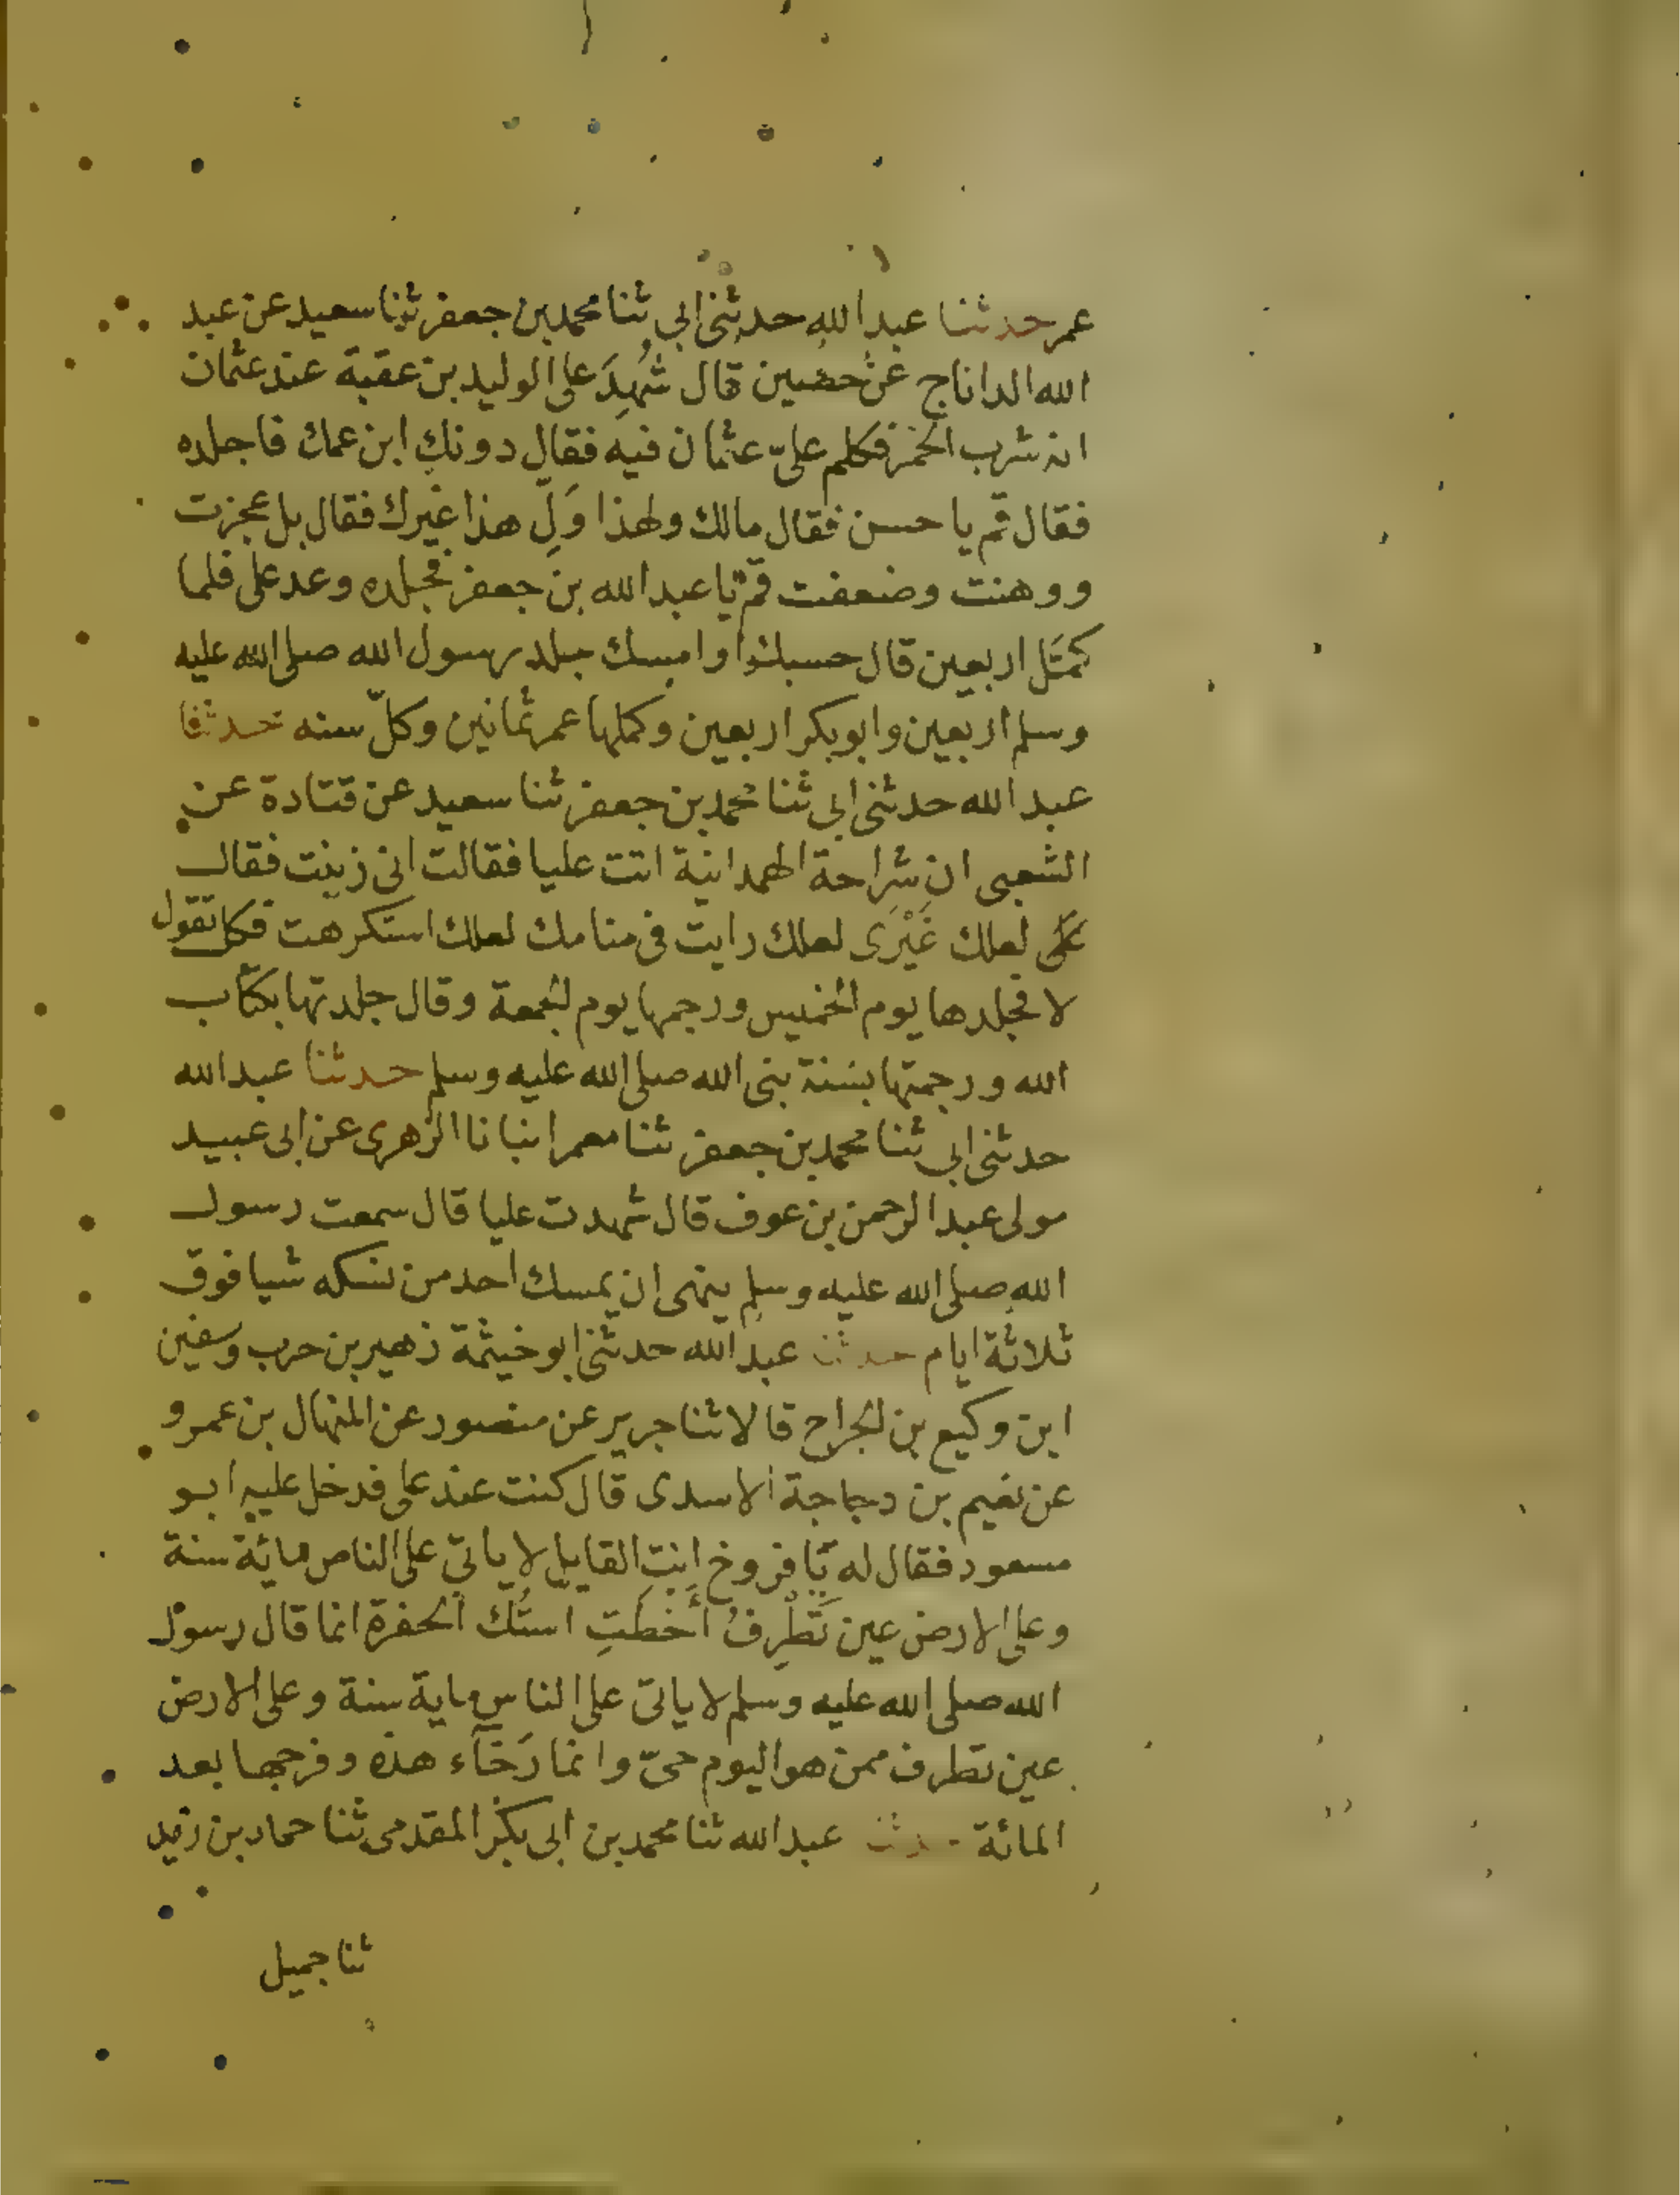 عمر حدثنا عبد الله حدثنى ابى ثنا محمد بن جعفر ثنا سعيد عن عبد
الله الداناج عن حضين قال شُهِدَ على الوليد بن عقبة عند عثمان
انه شرب الخمر فكلم علىّ عثمان فيه فقال دونك ابن عمك فاجلده
فقال قم يا حسن فقال مالك ولهذا وَلِّ هذا غيرك فقال بل عجزت
ووهنت وضعفت قم يا عبد الله بن جعفر فجلده وعد على فلما
كمّل اربعين قال حسبك او امسك جلد رسول الله صلى الله عليه
وسلم اربعين وابو بكر اربعين وكملها عمر ثمانين وكلّ سنه حدثنا
عبد الله حدثنى ابى ثنا محمد بن جعفر ثنا سعيد عن قتادة عن
الشعبى ان شراحة الهمدانية اتت عليا فقالت انى زنيت فقال
على لعلك غَيْرَى لعلك رايت فى منامك لعلك استكرهت فكل تقول
لا فجلدها يوم الخميس ورجمها يوم الجمعة وقال جلدتها بكتاب
الله ورجمتها بسنة نبى الله صلى الله عليه وسلم حدثنا عبد الله
حدثنى ابى ثنا محمد بن جعفر ثنا معمر انبانا الزهرى عن ابى عبيد
مولى عبد الرحمن بن عوف قال شهدت عليا قال سمعت رسول
الله صلى الله عليه وسلم ينهى ان يمسك احد من نسكه شيا فوق
ثلاثة ايام حدثنا عبد الله حدثنى ابو خيثمة زهير بن حرب وسفين
ابن وكيع بن الجراح قالا ثنا جرير عن منصور عن المنهال بن عمرو
عن نعيم بن دجاجة الاسدى قال كنت عند على فدخل عليه ابو
مسعود فقال له يا فروخ انت القايل لا ياتى على الناس مائة سنة
وعلى الارض عين تَطْرِفُ أخطَتِ استُك الحفرة انما قال رسول
الله صلى الله عليه وسلم لا ياتى على الناس ماية سنة وعلى الارض
عين تطرف ممن هو اليوم حىّ وانما رَخآء هذه وفرجها بعد
المائة حدثنا عبد الله ثنا محمد بن ابى بكر المقدمى ثنا حماد بن زيد
ثنا جميل